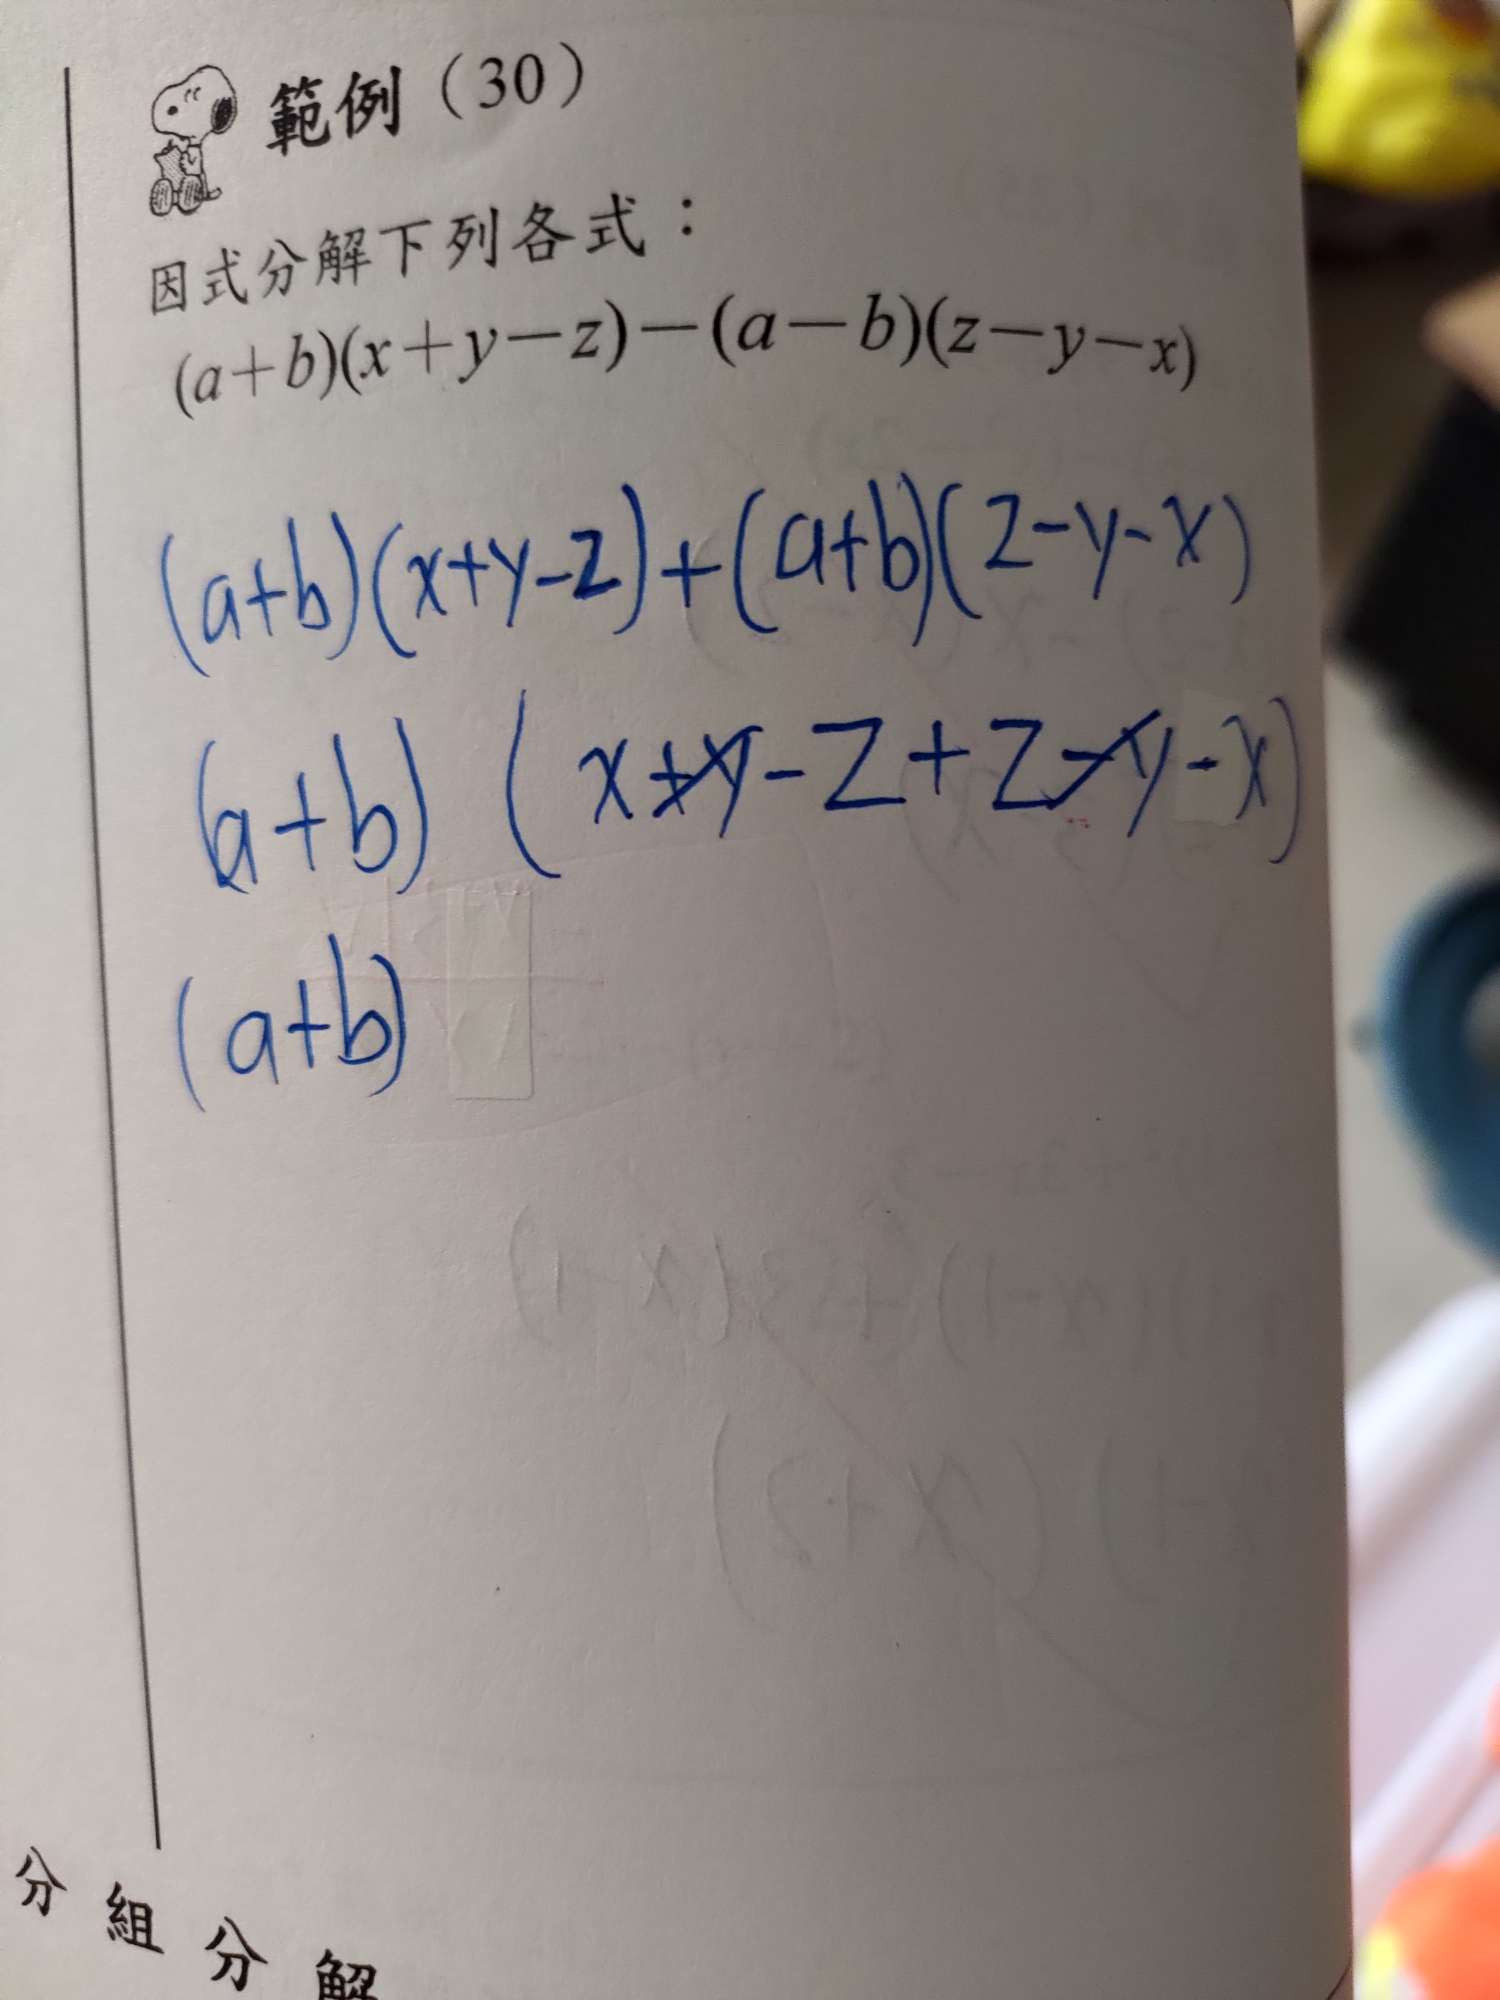 範例（30）
因式分解下列各式：
(a+b)(x+y−z)−(a−b)(z−y−x)
(a+b)(x+y-z)+(a+b)(z-y-x)
(a+b) (x+y-z+z-y-x)
(a+b)
分組分解